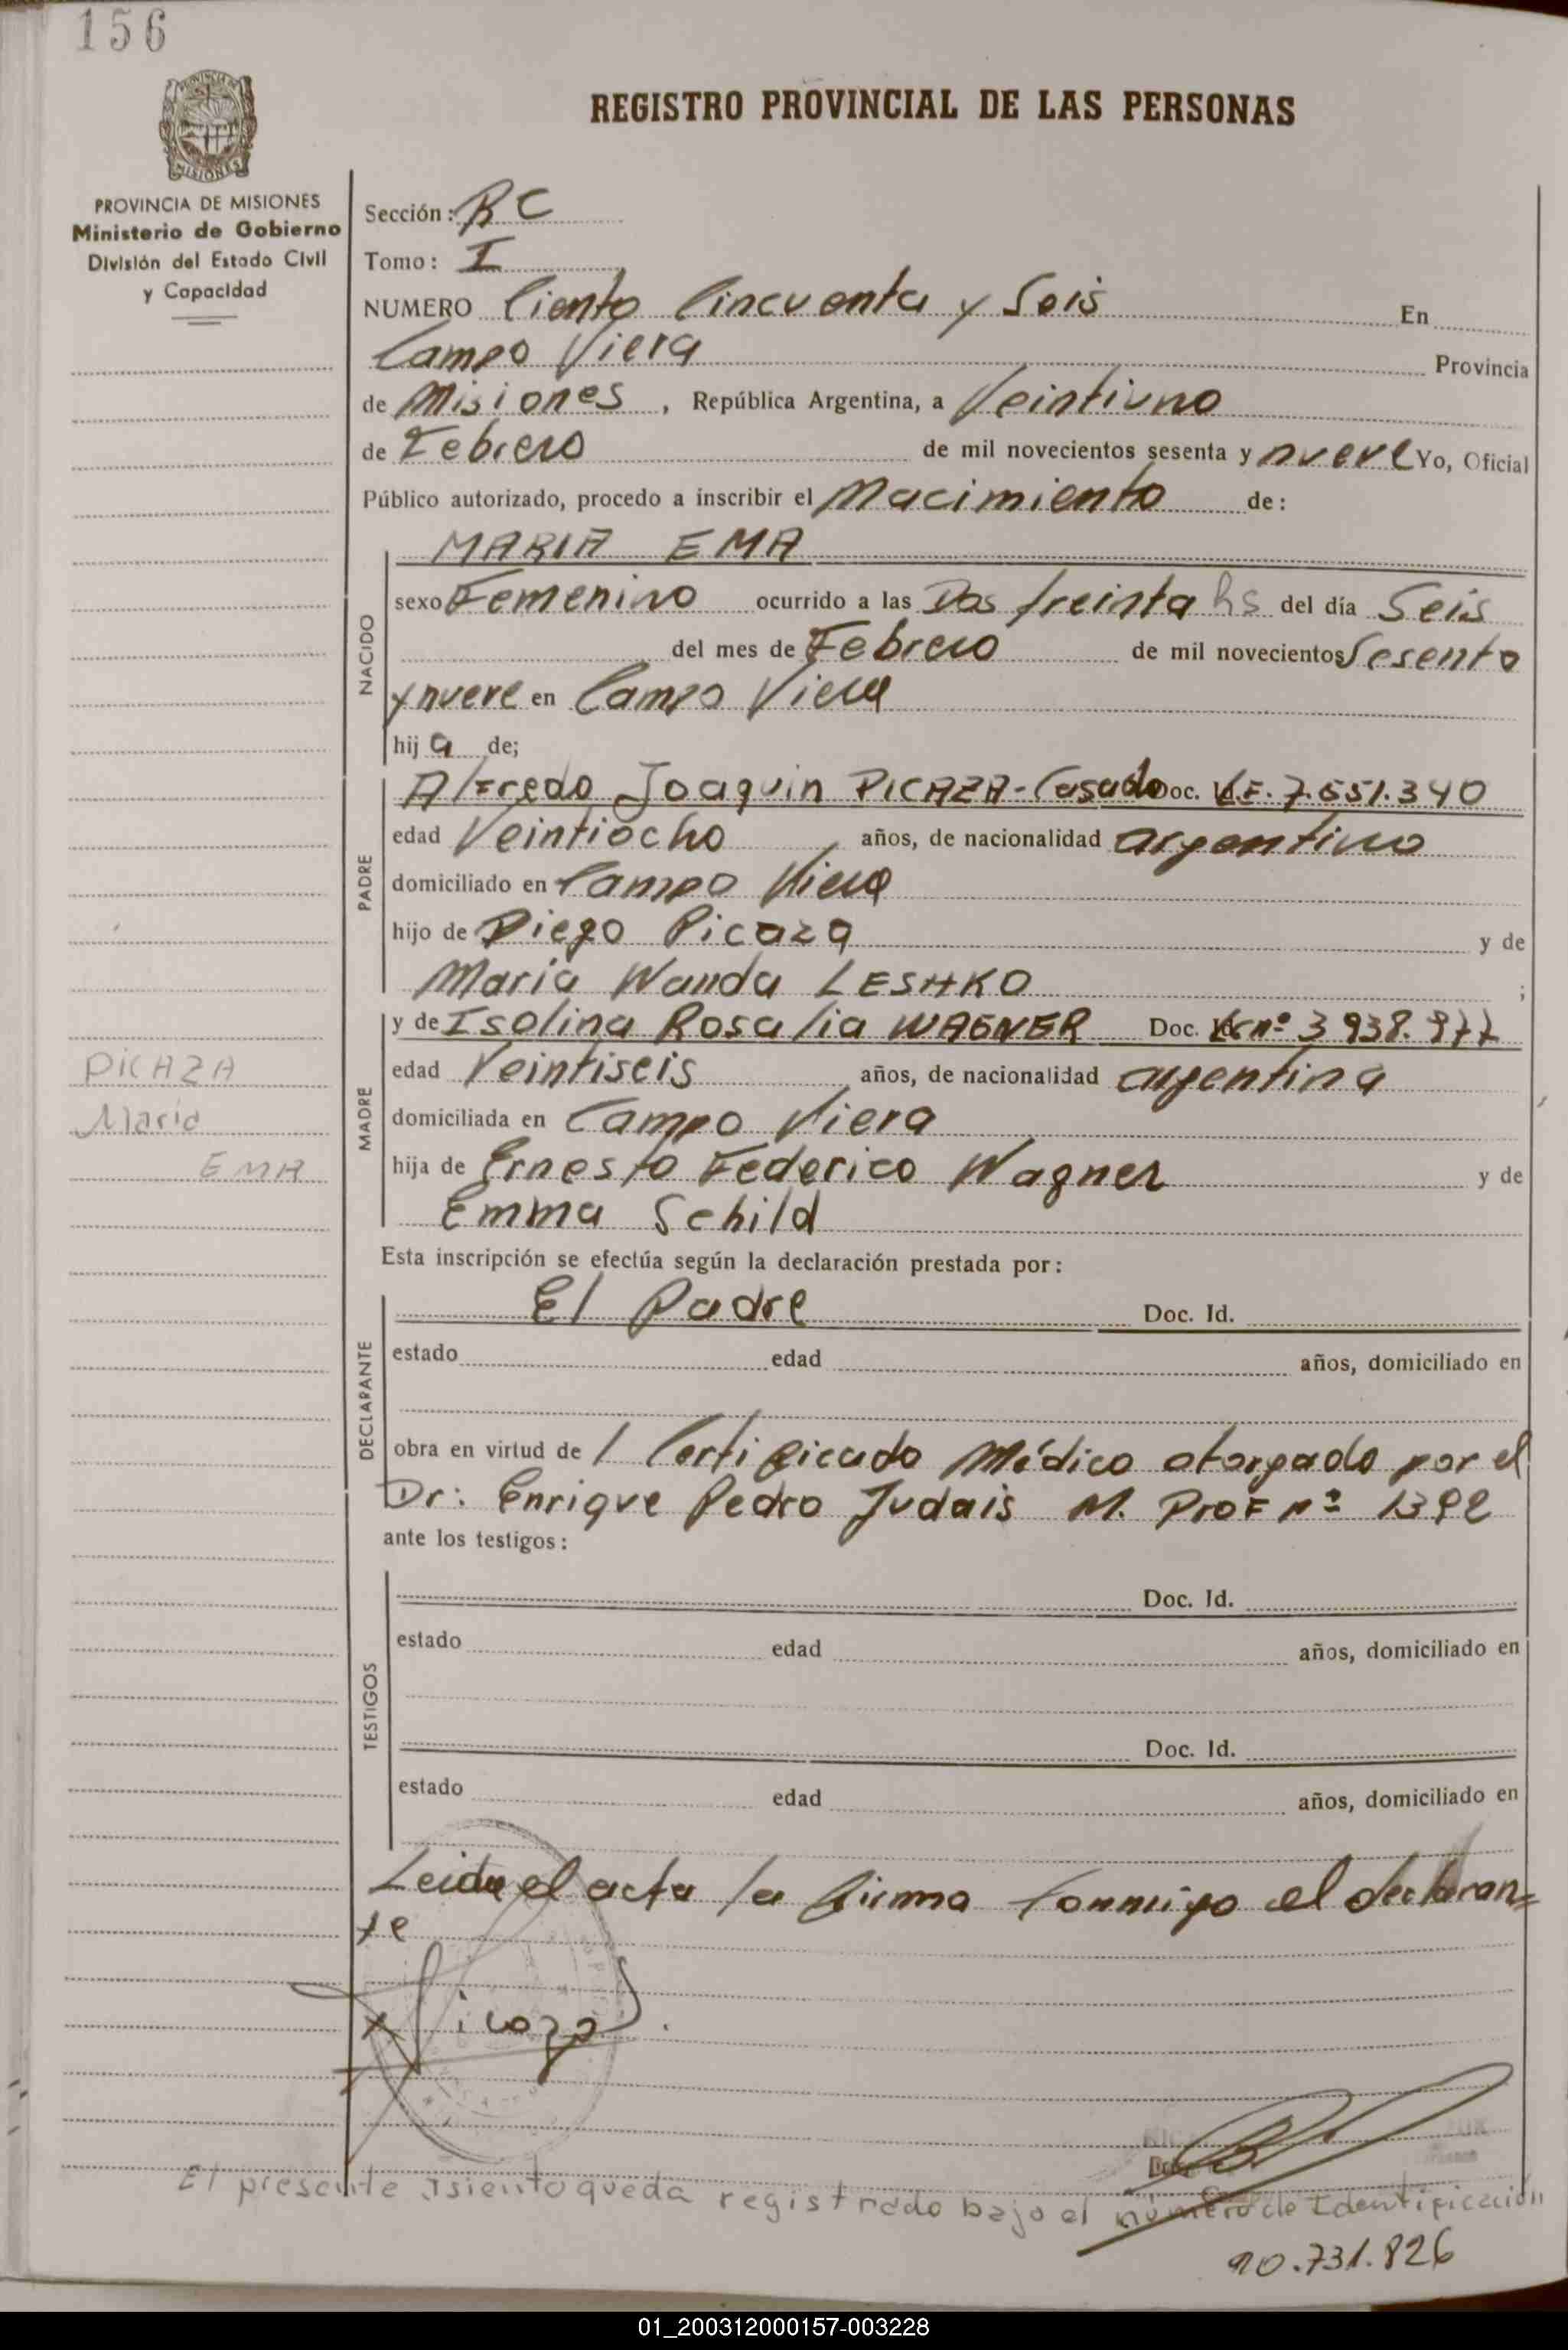 156
REGISTRO PROVINCIAL DE LAS PERSONAS
PROVINCIA DE MISIONES
Ministerio de Gobierno
División del Estado Civil
y Capacidad
Sección: RC
Tomo: I
NUMERO Ciento Cincuenta y Seis En
Campo Viera Provincia
de Misiones, República Argentina, a Veintiuno
de Febrero de mil novecientos sesenta y nueve Yo, Oficial
Público autorizado, procedo a inscribir el Nacimiento de:
NACIDO
MARIA EMA
sexo Femenino ocurrido a las Dos treinta hs del día Seis
del mes de Febrero de mil novecientos Sesenta
y nueve en Campo Viera
hija de;
PADRE
Alfredo Joaquin PICAZA-Casado Doc. L.E. 7.551.340
edad Veintiocho años, de nacionalidad argentino
domiciliado en Campo Viera
hijo de Diego Picaza y de
Maria Wanda LESHKO ;
MADRE
y de Isolina Rosalia WAGNER Doc. nº 3 938.977
edad Veintiseis años, de nacionalidad argentina
domiciliada en Campo Viera
hija de Ernesto Federico Wagner y de
Emma Schild
PICAZA
Maria
EMA
Esta inscripción se efectúa según la declaración prestada por:
DECLARANTE
El Padre Doc. Id.
estado edad años, domiciliado en
obra en virtud de 1 Certificado Médico otorgado por el
Dr: Enrique Pedro Judais M. Prof nº 1392
ante los testigos:
TESTIGOS
Doc. Id.
estado edad años, domiciliado en
Doc. Id.
estado edad años, domiciliado en
Leida el acta la firma conmigo el declaran=
te
Picaza
El presente Asiento queda registrado bajo el número de Identificación
20.731.826
01_200312000157-003228